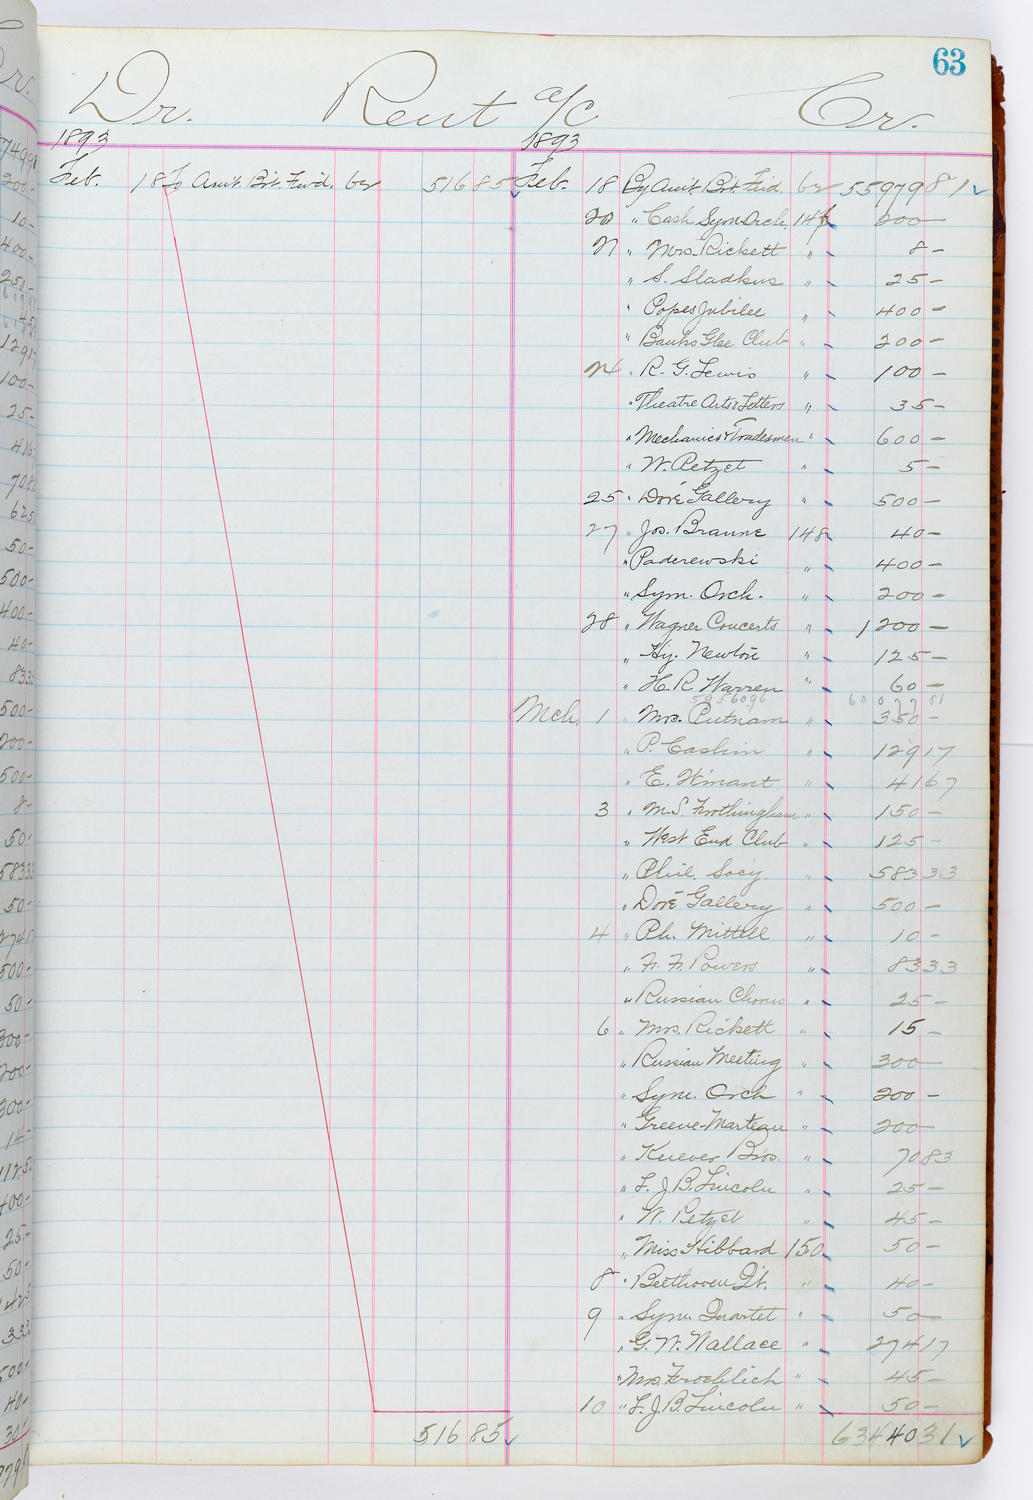 63
Dr. Rent a/c Cr.
1893 1893
Feb. 18 To Amt. Bt. Fwd. 62 516 85 Feb. 18 By Amt. Bt. Fwd. 62 55979 81
20 " Cash Sym. Orch. 146 200 —
21 " Mrs. Rickett " 8 —
" S. Sladkus " 25 —
" Popes Jubilee " 400 —
" Banks Glee Club " 200 —
24 " R. G. Lewis " 100 —
" Theatre Arts & Letters " 35 —
" Mechanics & Tradesmen " 600 —
" W. Petzet " 5 —
25 " Doré Gallery " 500 —
27 " Jos. Braune 148 40 —
" Paderewski " 400 —
" Sym. Orch. " 200 —
28 " Wagner Concerts " 1200 —
" Hy. Newton " 125 —
" H. R. Warren " 60 —
60077 81
Mch. 1 " Mrs. Putnam " 350 —
" P. Cashin " 129 17
" E. Winant " 41 67
3 " M. S. Frothingham " 150 —
" West End Club " 125 —
" Phil. Soc'y " 583 33
" Doré Gallery " 500 —
4 " Ph. Mittell " 10 —
" F. F. Powers " 83 33
" Russian Chorus " 25 —
6 " Mrs. Rickett " 15 —
" Russian Meeting " 300 —
" Sym. Orch " 200 —
" Greene-Marteau " 200 —
" Kuever Bros. " 70 83
" F. J. B. Lincoln " 25 —
" W. Petzet " 45 —
" Miss Hibbard 150 50 —
8 " Beethoven Qt. " 40 —
9 " Sym. Quartet " 50 —
" G. W. Wallace " 274 17
" Mrs. Froehlich " 45 —
10 " F. J. B. Lincoln " 50 —
516 85 63440 31